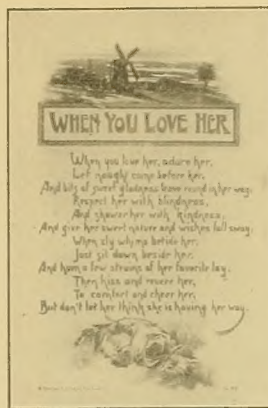 WHEN YOU LOVE HER
When you love her, adore her,
Let naught come before her,
And bits of sweet gladness leave round in her way;
Respect her with blindness,
And shower her with kindness,
And give her sweet nature and wishes full sway.
When sly whims betide her,
Just sit down beside her,
And hum a few strains of her favorite lay;
Then kiss and revere her,
To comfort and cheer her,
But don't let her think she is having her way.